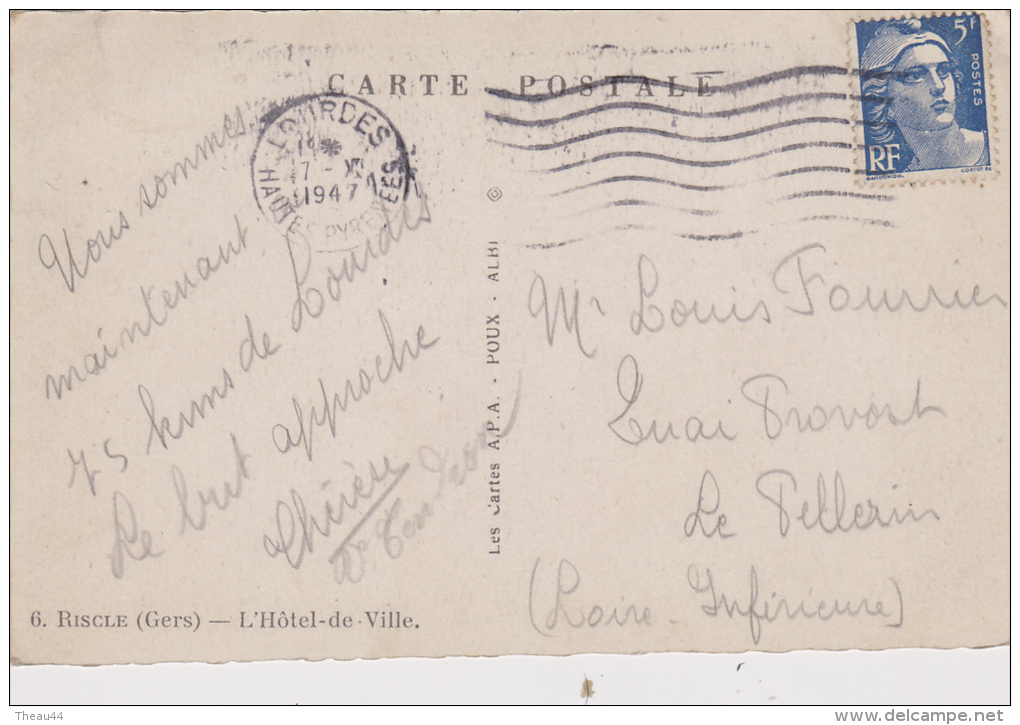 CARTE POSTALE
5F
POSTES
RF
LOURDES
17 - X
1947
Nous sommes
maintenant
75 kms de Lourdes
Le but approche
Mr Louis Fournier
Quai Provost
Le Pellerin
(Loire-Inférieure)
Les Cartes A.P.A. - POUX - ALBI
6. RISCLE (Gers) — L'Hôtel-de-Ville.
Theau44
www.delcampe.net